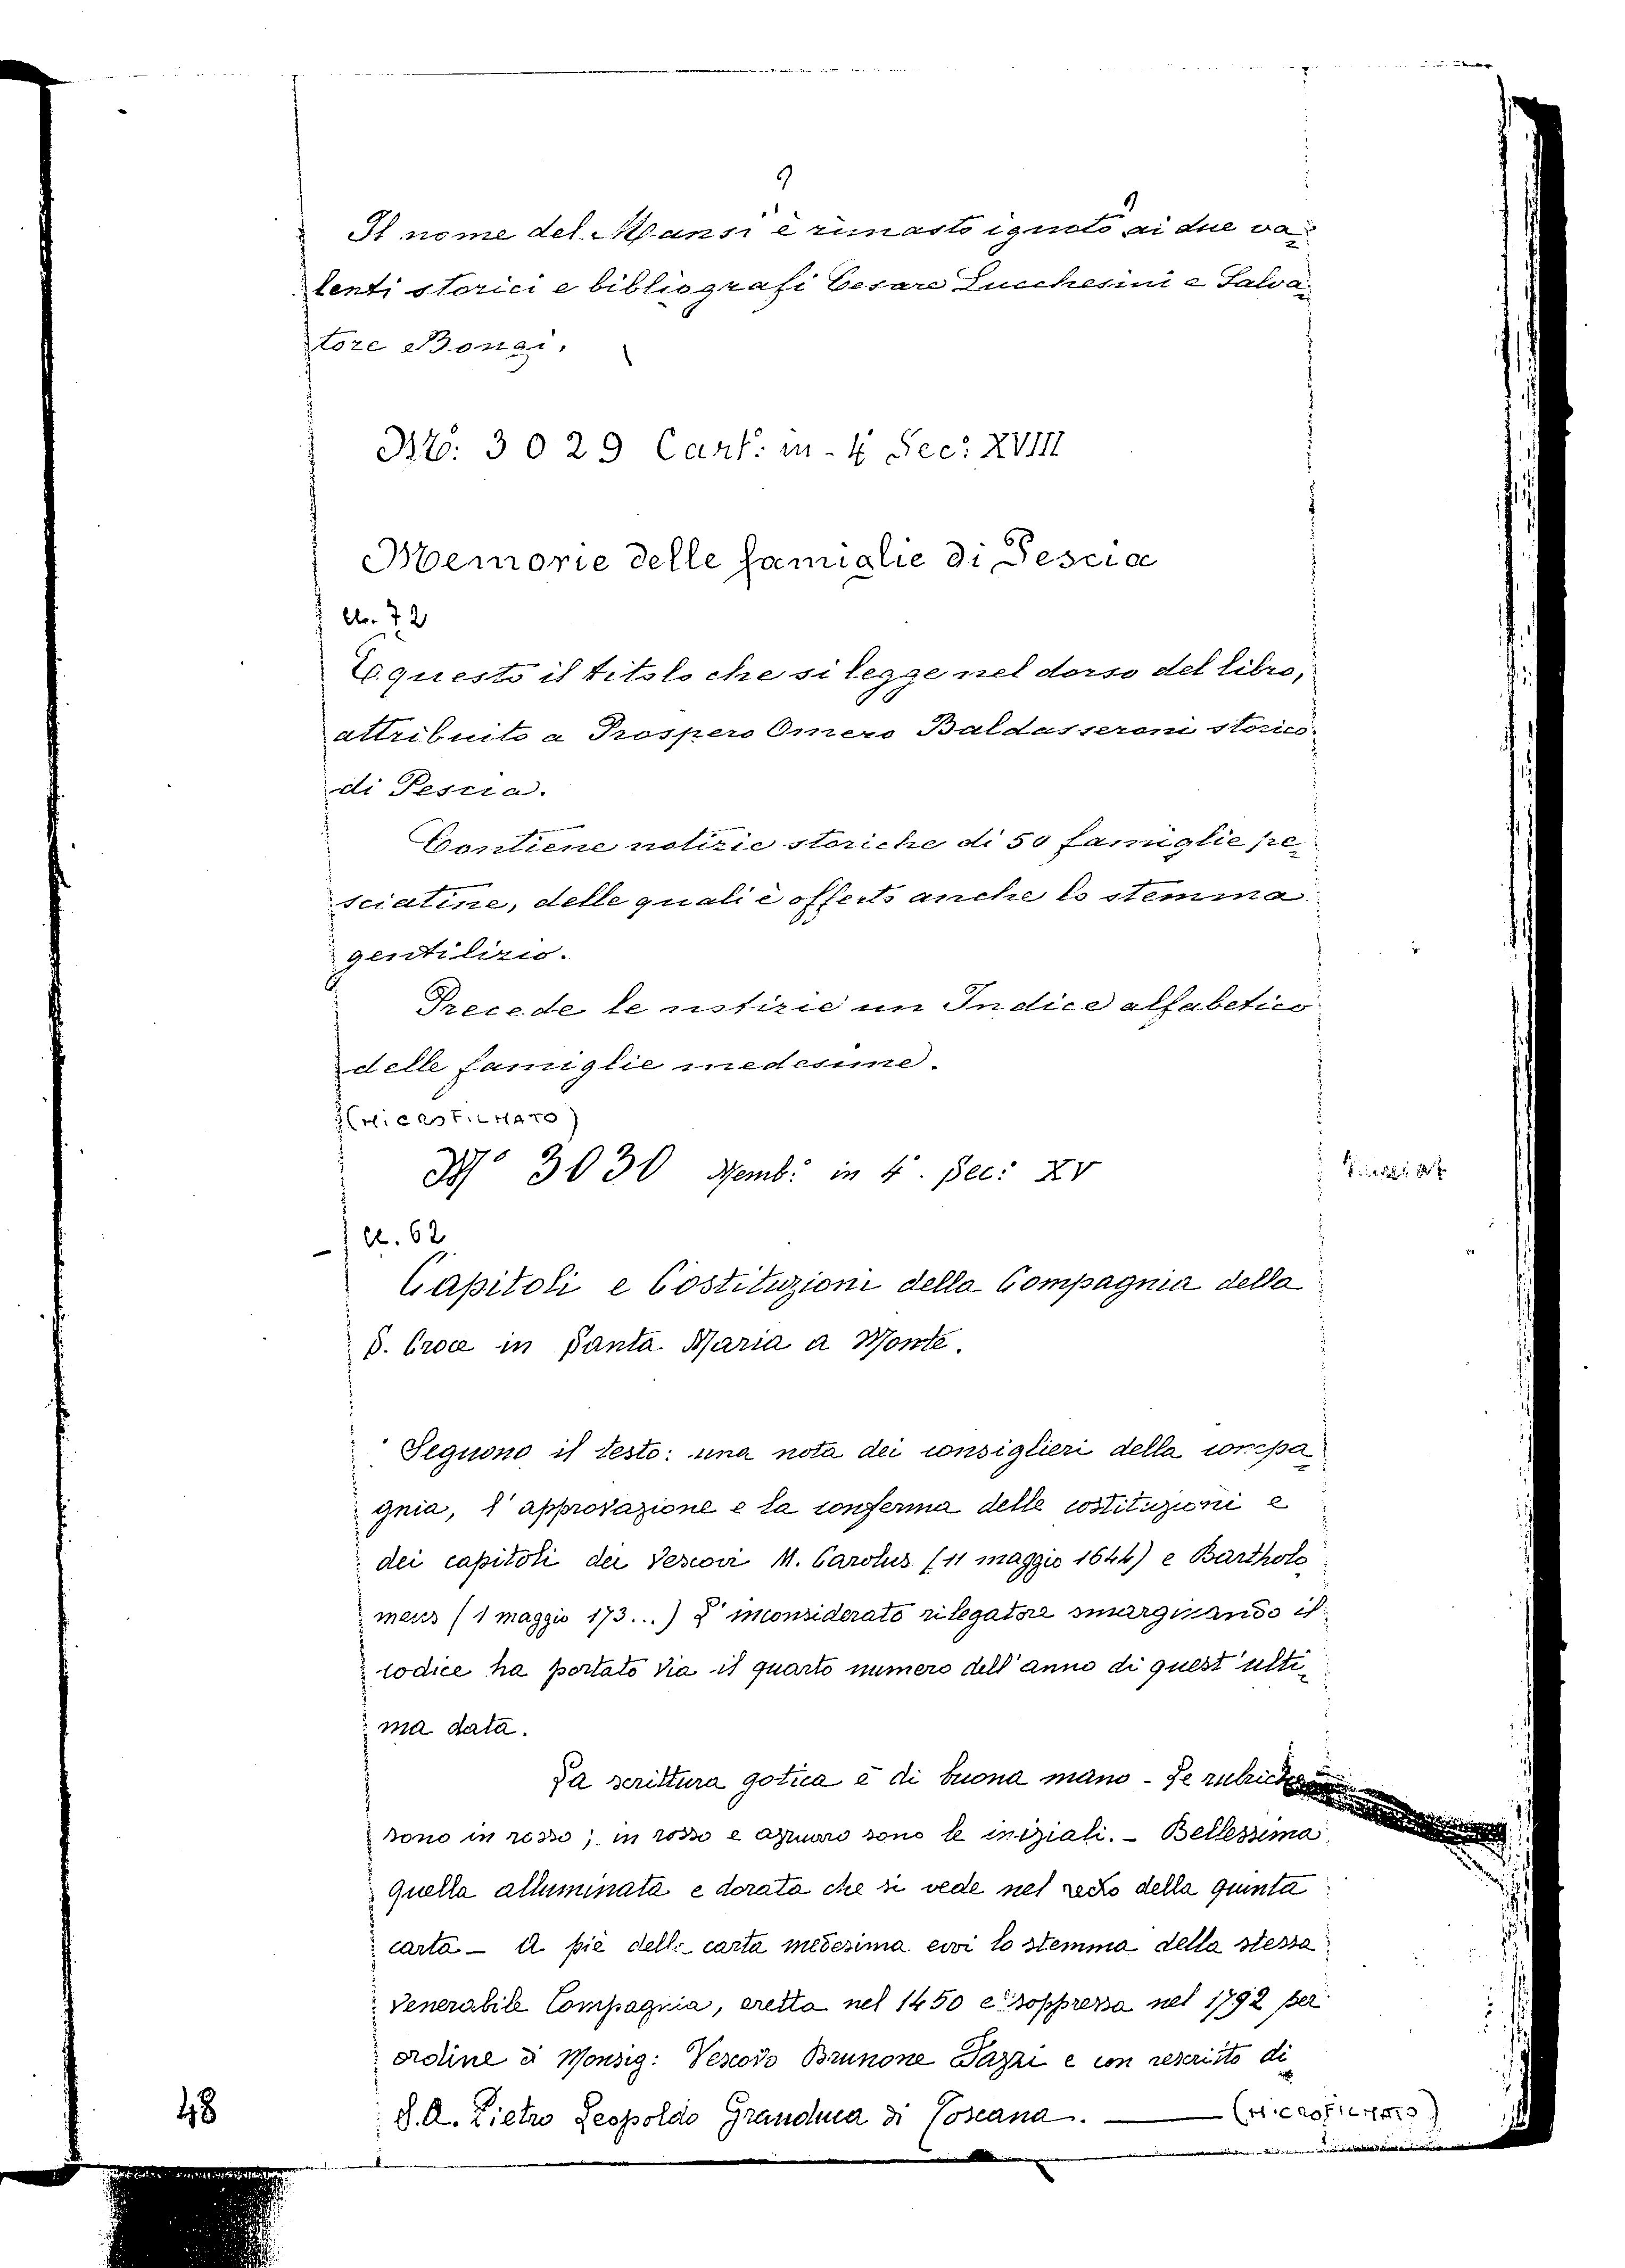 Il nome del Mansi è rimasto ignoto ai due va-
lenti storici e bibliografi Cesare Lucchesini e Salva-
tore Bongi.
Ms: 3029 Cart: in-4 Sec: XVIII
Memorie delle famiglie di Pescia
Cc. 72
È questo il titolo che si legge nel dorso del libro,
attribuito a Prospero Omero Baldasseroni storico
di Pescia.
Contiene notizie storiche di 50 famiglie pe-
sciatine, delle quali è offerto anche lo stemma
gentilizio.
Precede le notizie un Indice alfabetico
delle famiglie medesime.
(MICROFILMATO)
Ms 3030 Memb: in 4. Sec: XV
cc. 62
Capitoli e Costituzioni della Compagnia della
S. Croce in Santa Maria a Monte.
Seguono il testo: una nota dei consiglieri della compa-
gnia, l'approvazione e la conferma delle costituzioni e
dei capitoli dei Vescovi M. Carolus (11 maggio 1644) e Bartholo
meus (1 maggio 173...) L'inconsiderato rilegatore smarginando il
codice ha portato via il quarto numero dell'anno di quest'ulti-
ma data.
La scrittura gotica è di buona mano - Le rubriche
sono in rosso; in rosso e azzurro sono le iniziali. - Bellessima
quella alluminata e dorata che si vede nel recto della quinta
carta - A piè della carta medesima evvi lo stemma della stessa
Venerabile Compagnia, eretta nel 1450 e soppressa nel 1792 per
ordine di Monsig: Vescovo Brunone Fazzi e con rescritto di
S. A. Pietro Leopoldo Granduca di Toscana. — (MICROFILMATO)
48